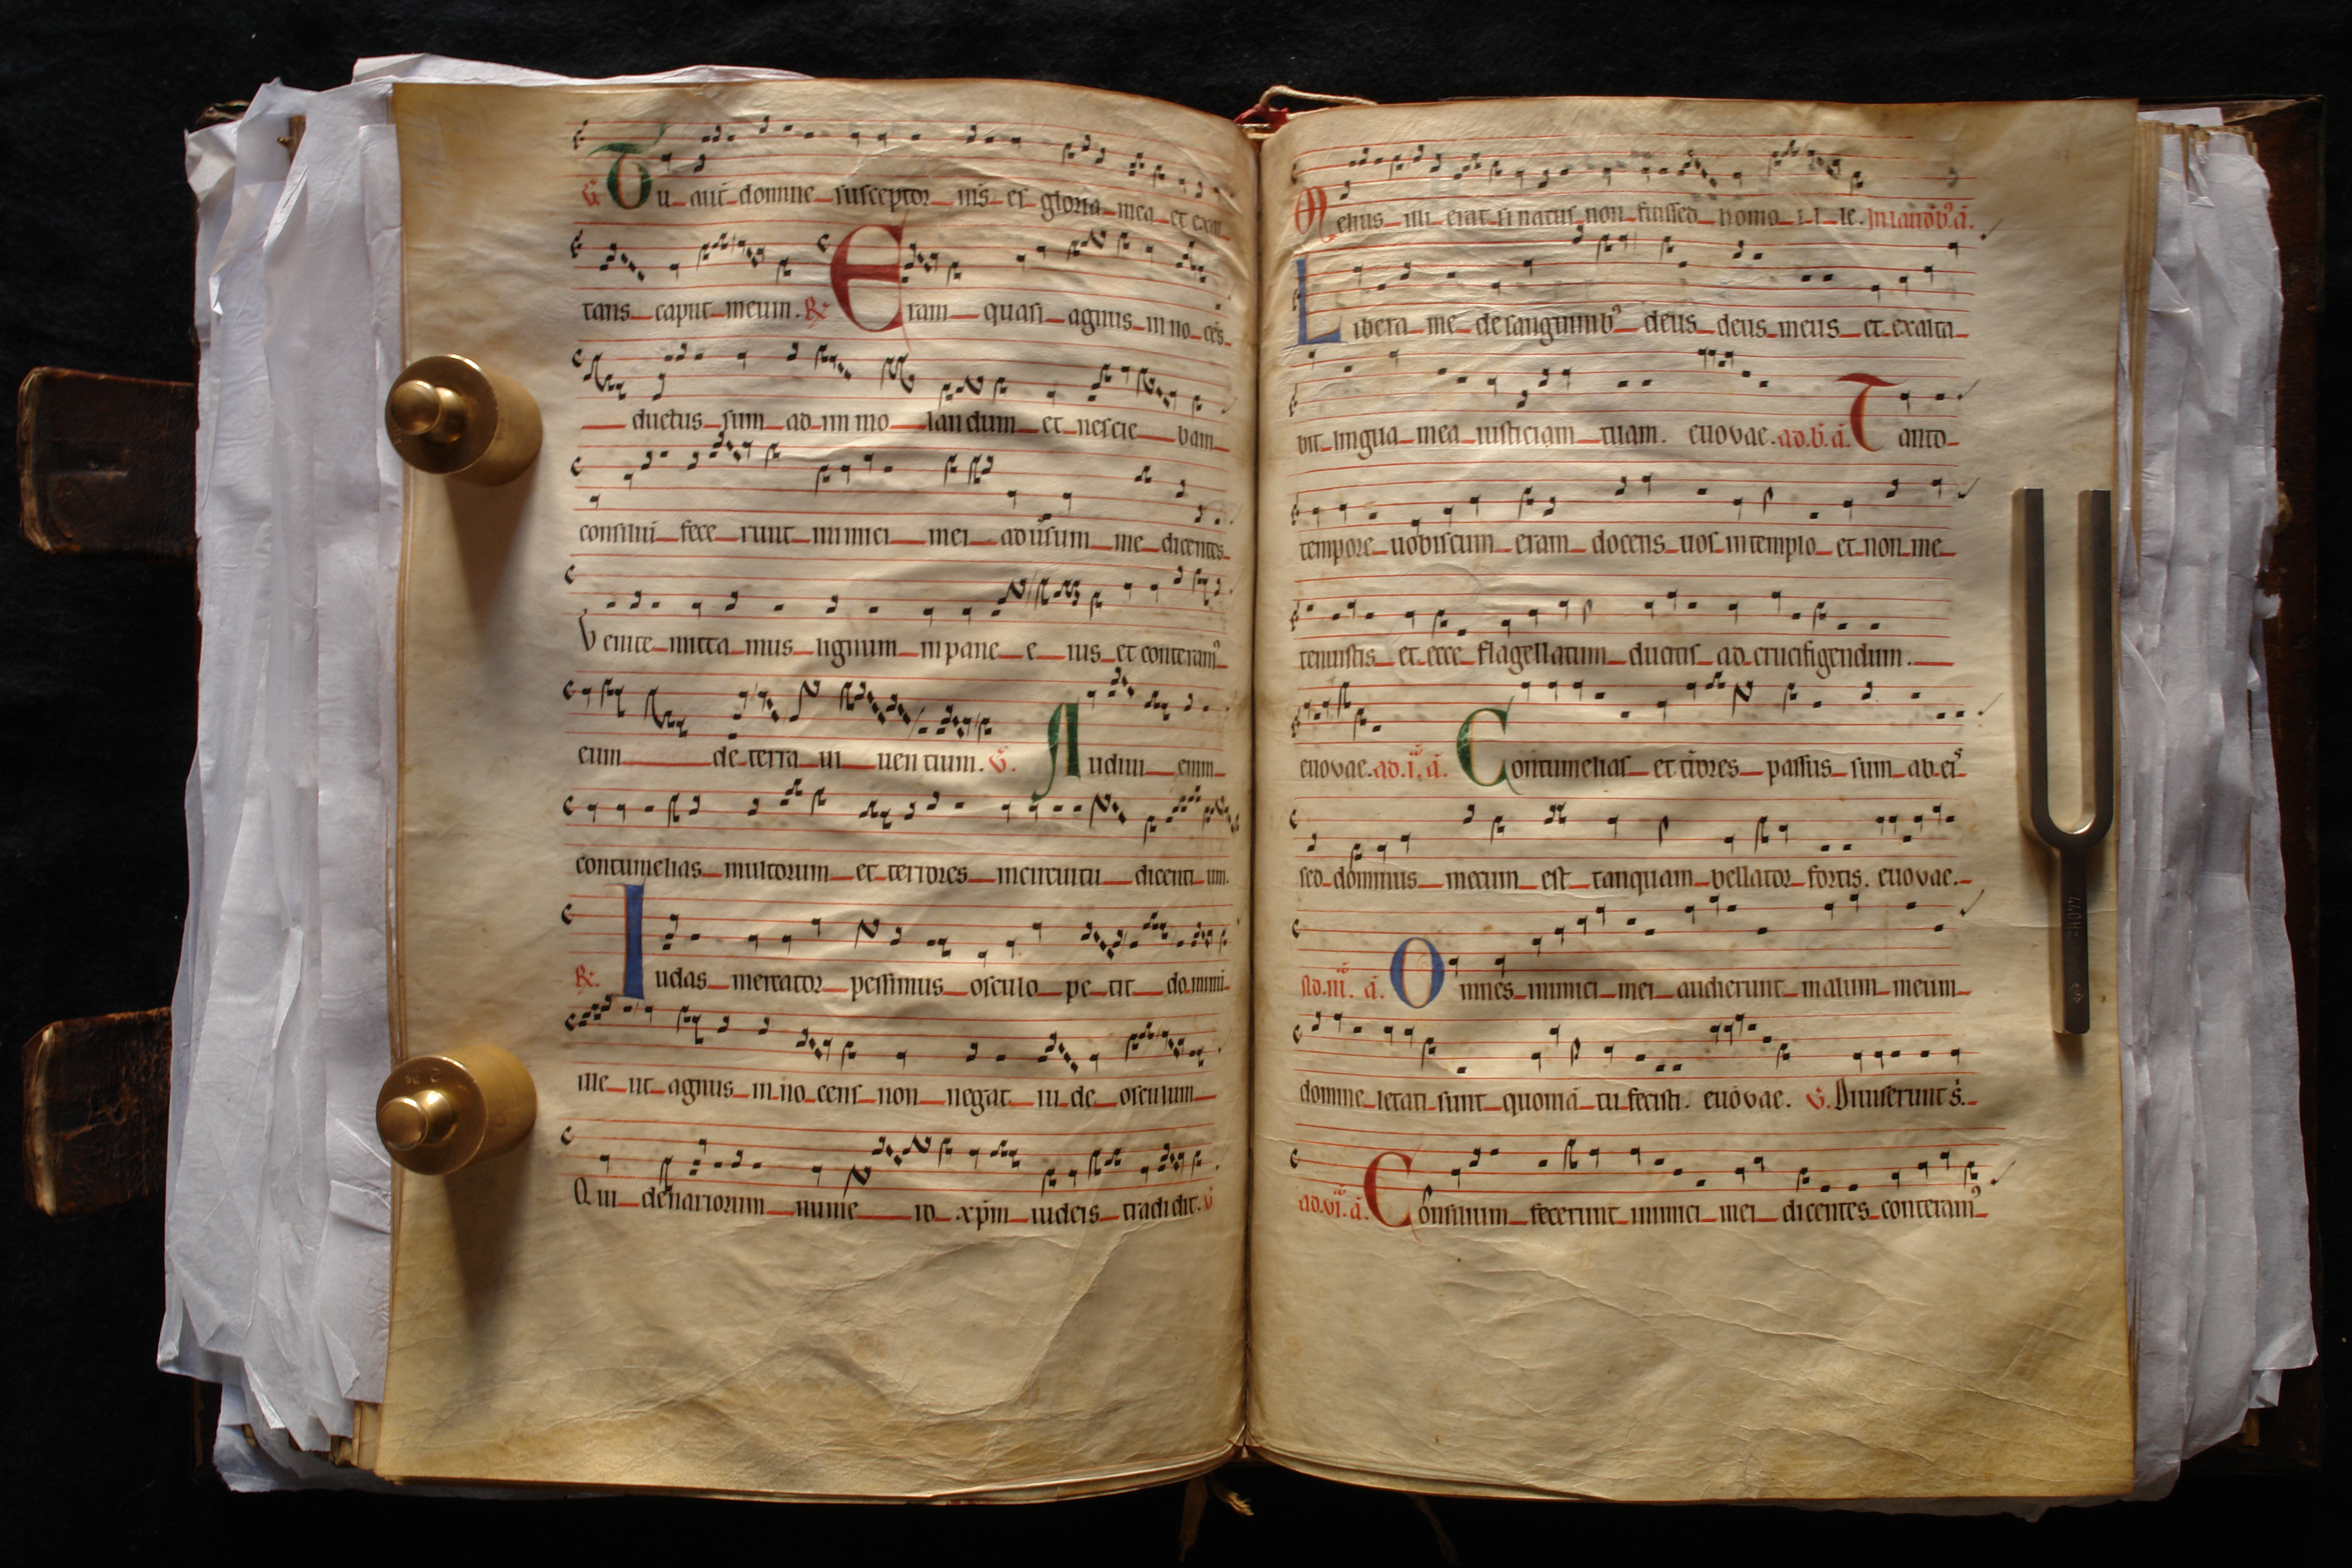 Tu aut domine susceptor ms es gloria mea et exal
tans caput meum. R. Eram quasi agnus in no cēs
ductus sum ad im mo landum et nescie bam
consiliū fece runt inimici mei adūsum me dicentes
Venite mitta mus lignum in pane e ius et conteram⁹
eum de terra ui uen tium. V. Audiui enim
contumelias multorum et terrores incircuitu dicenti um.
R. Iudas mercator pessimus osculo pe tit do mini
me ut agnus in no cens non negat iu de osculum
Qui denariorum nume ro xp̄m iudeis tradidit. V
Melius illi erat si natus non fuisset homo il le. In laudib⁹. a.
Libera me de sanguinib⁹ deus deus meus et exalta
bit lingua mea iusticiam tuam. euovae. ad. b. a. Tanto
tempore uobiscum eram docens uos in templo et non me
tenuistis et ecce flagellatum ducitis ad crucifigendum.
euovae. ad. i. a. Contumelias et t̄rores passus sum ab eis
sed dominus mecum est tanquam bellator fortis. euovae.
Ad. iii. a. Omnes inimici mei audierunt malum meum
domine letati sunt quoniā tu fecisti. euovae. V. Diuiserunt s.
ad. vi. a. Consilium fecerunt inimici mei dicentes conteram⁹
440HZ